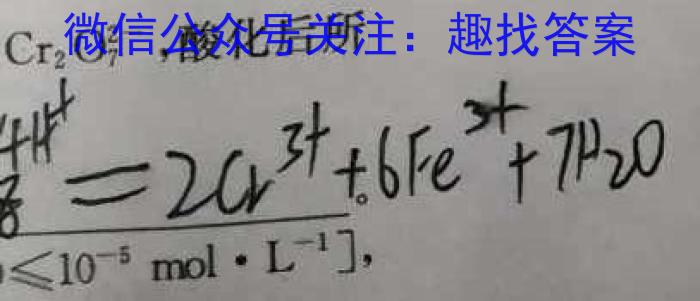 微信公众号关注：趣找答案
Cr₂O₇²⁻，酸化后所
4H⁺ = 2Cr³⁺ + 6Fe³⁺ + 7H₂O
≤10⁻⁵ mol·L⁻¹]，